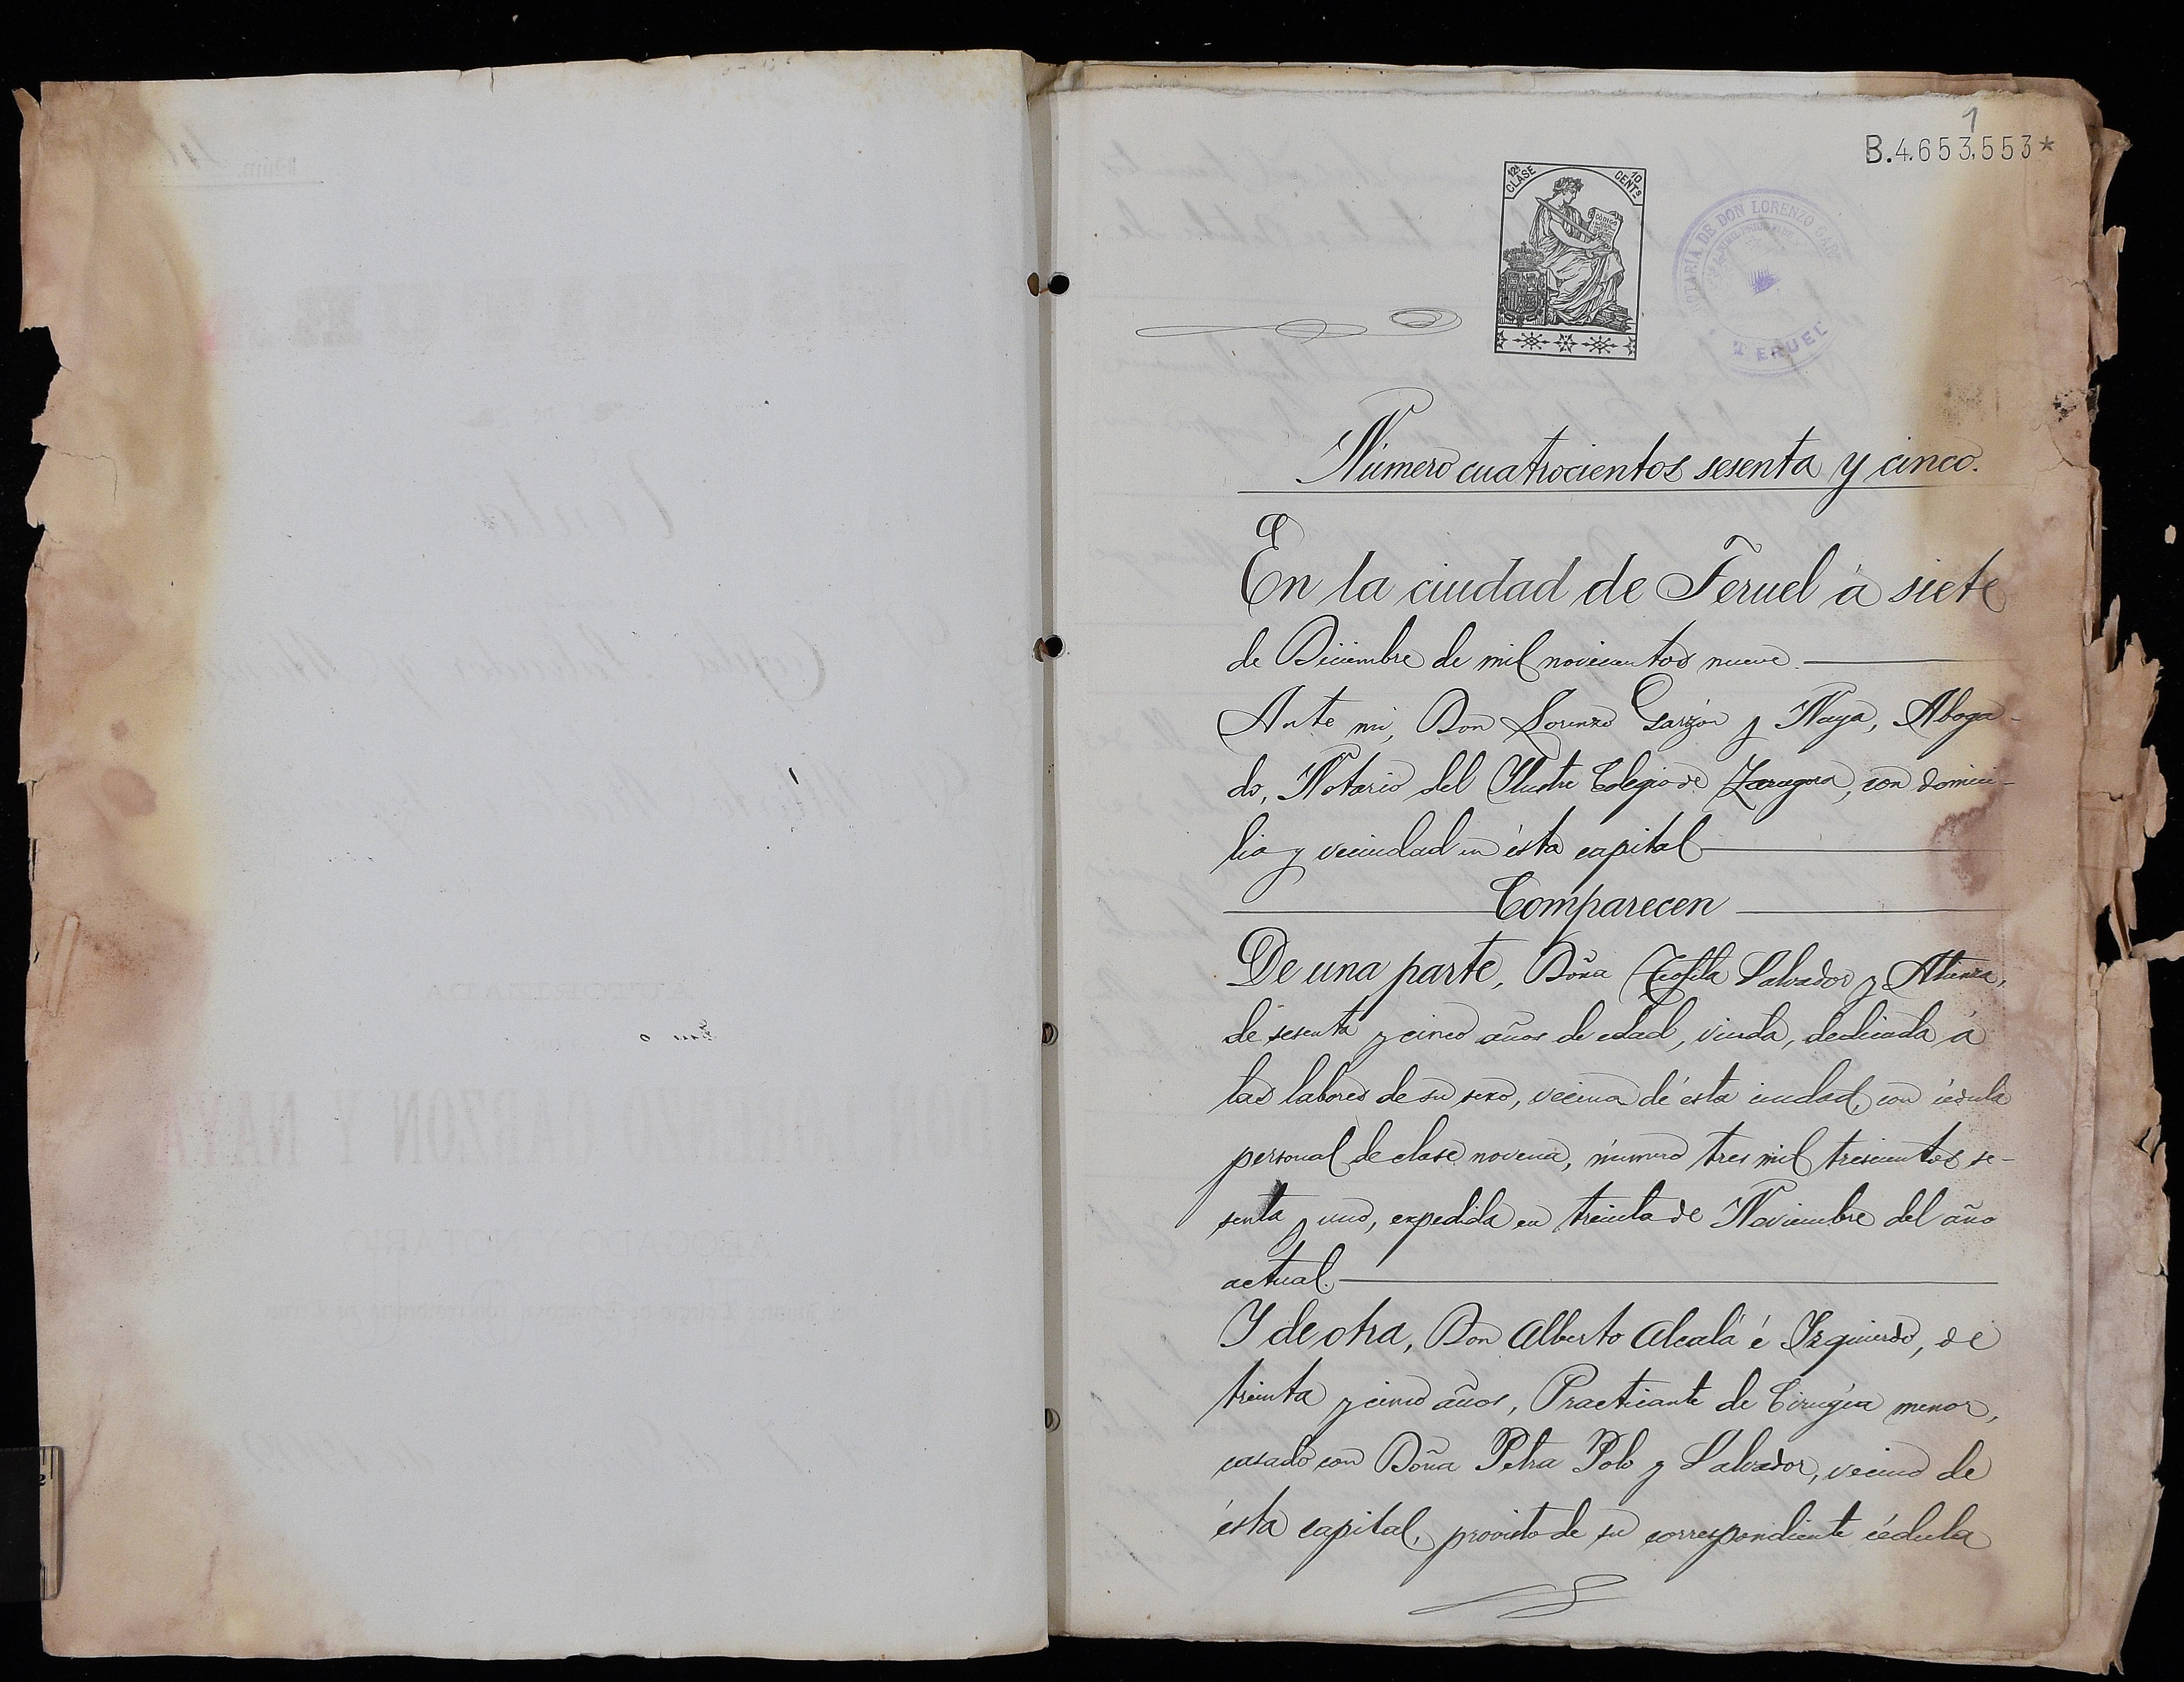 1
B.4.653.553*
12ª CLASE
10 CENTS
NOTARIA DE DON LORENZO GARZ
TERUEL
Número cuatrocientos sesenta y cinco.
En la ciudad de Teruel á siete
de Diciembre de mil novecientos nueve.
Ante mi, Don Lorenzo Garzón y Naya, Aboga-
do, Notario del Ilustre Colegio de Zaragoza, con domici-
lio y vecindad en ésta capital
Comparecen
De una parte, Doña Teofila Salvador y Atienza,
de sesenta y cinco años de edad, viuda, dedicada á
las labores de su sexo, vecina de ésta ciudad, con cédula
personal de clase novena, número tres mil trescientos se-
senta y uno, expedida en treinta de Noviembre del año
actual.
Y de otra, Don Alberto Alcalá é Izquierdo, de
treinta y cinco años, Practicante de Cirugía menor,
casado con Doña Petra Polo y Salvador, vecino de
ésta capital, provisto de su correspondiente cédula